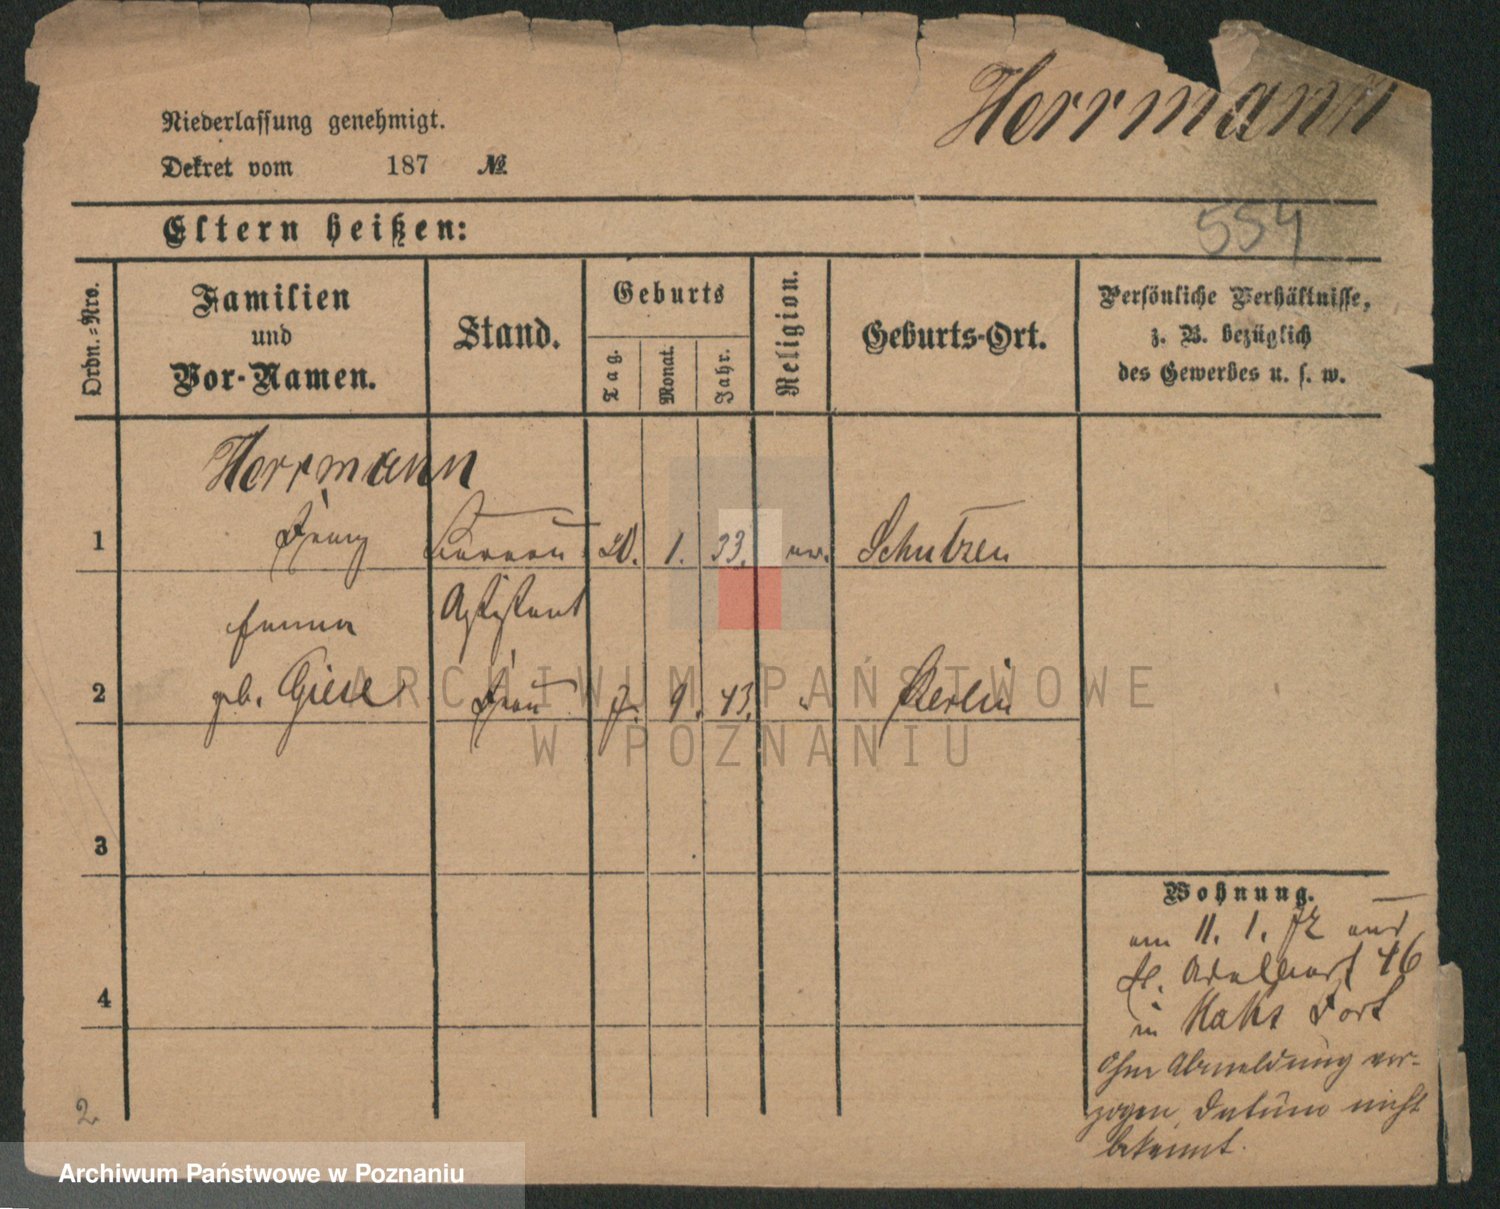 Herrmann
Niederlassung genehmigt.
Dekret vom 187 №
554
Eltern heißen:
Ordn.=Nro.
Familien
und
Vor-Namen.
Stand.
Geburts
Tag.
Monat.
Jahr.
Religion.
Geburts-Ort.
Persönliche Verhältnisse,
z. B. bezüglich
des Gewerbes u. s. w.
Herrmann
1 Franz Bureau 20. 1. 33. ev. Schutzen
Assistent
Emma
2 geb. Giese Frau 7. 9. 43. " Berlin
3
4
Wohnung.
am 11. 1. 72 aus
St. Adalbert 46
in Kaks Fort
Ohne Abmeldung ver-
zogen, Datum nicht
bekannt.
2
ARCHIWUM PAŃSTWOWE
W POZNANIU
Archiwum Państwowe w Poznaniu